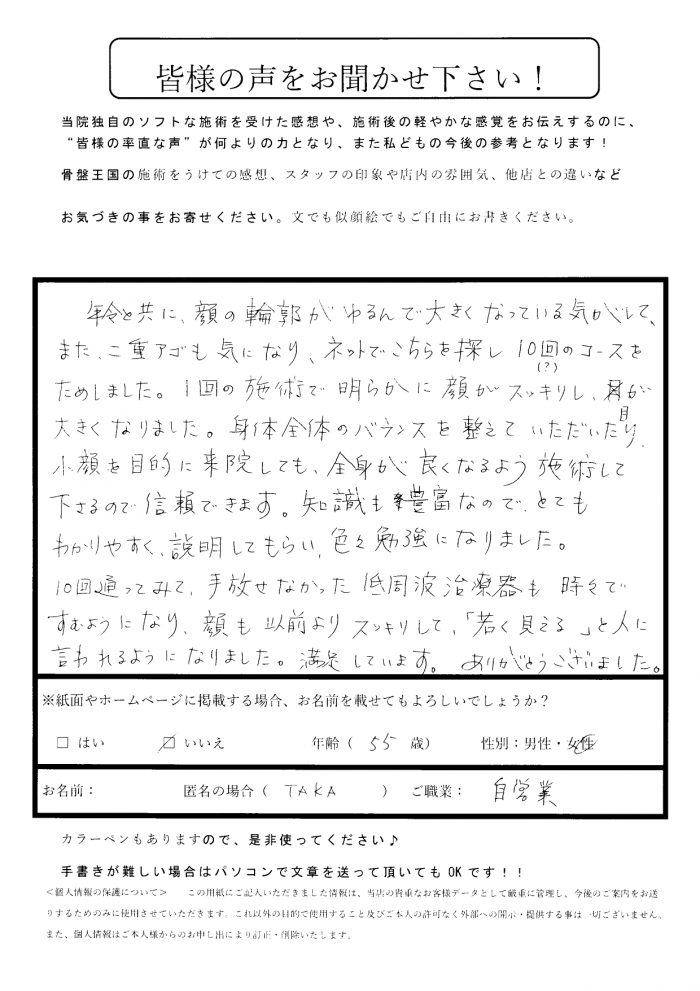 皆様の声をお聞かせ下さい！
当院独自のソフトな施術を受けた感想や、施術後の軽やかな感覚をお伝えするのに、
“皆様の率直な声”が何よりの力となり、また私どもの今後の参考となります！
骨盤王国の施術をうけての感想、スタッフの印象や店内の雰囲気、他店との違いなど
お気づきの事をお寄せください。文でも似顔絵でもご自由にお書きください。
年令と共に、顔の輪郭がゆるんで大きくなっている気がして、
また、二重アゴも気になり、ネットでこちらを探し10回のコースを
(？)
ためしました。1回の施術で明らかに顔がスッキリし、目が
大きくなりました。身体全体のバランスを整えていただいたり、
小顔を目的に来院しても、全身が良くなるよう施術して
下さるので信頼できます。知識も豊富なので、とても
わかりやすく、説明してもらい、色々勉強になりました。
10回通ってみて、手放せなかった低周波治療器も時々で
すむようになり、顔も以前よりスッキリして、「若く見える」と人に
言われるようになりました。満足しています。ありがとうございました。
※紙面やホームページに掲載する場合、お名前を載せてもよろしいでしょうか？
□ はい ☑ いいえ 年齢（ 55 歳） 性別：男性・女性
お名前： 匿名の場合（ TAKA ） ご職業： 自営業
カラーペンもありますので、是非使ってください♪
手書きが難しい場合はパソコンで文章を送って頂いてもOKです！！
＜個人情報の保護について＞ この用紙にご記入いただきました情報は、当店の貴重なお客様データとして厳重に管理し、今後のご案内をお送
りするためのみに使用させていただきます。これ以外の目的で使用すること及びご本人の許可なく外部への開示・提供する事は一切ございません。
また、個人情報はご本人様からのお申し出により訂正・削除いたします。